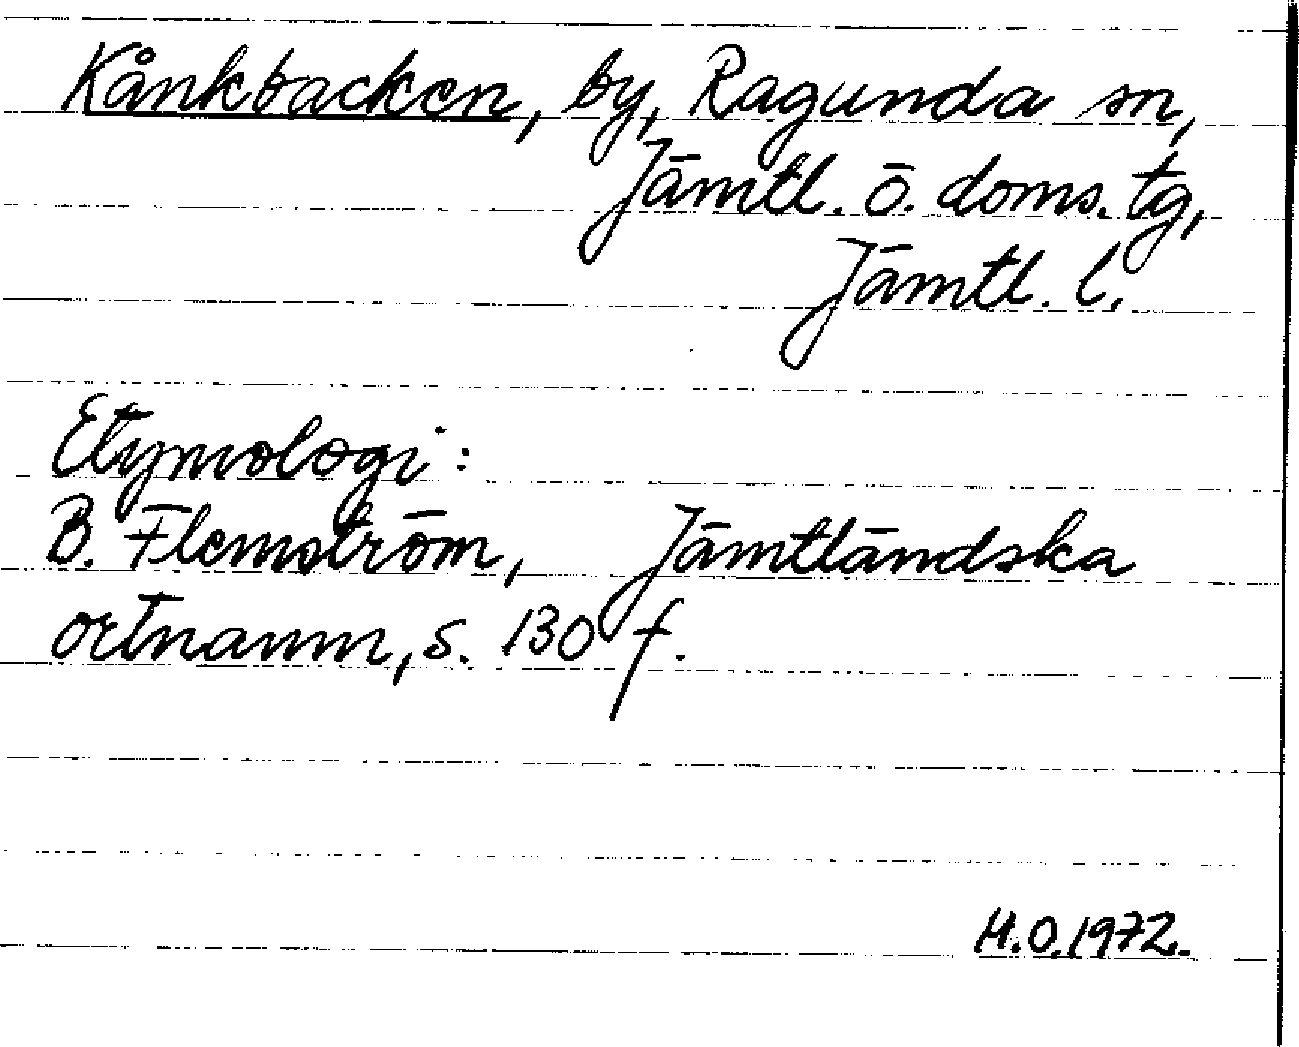 Kånkbacken, by, Ragunda sn,
Jämtl. ö. doms. tg,
Jämtl. l.
Etymologi:
B. Flemström, Jämtländska
ortnamn, s. 130 f.
H.O.1972.